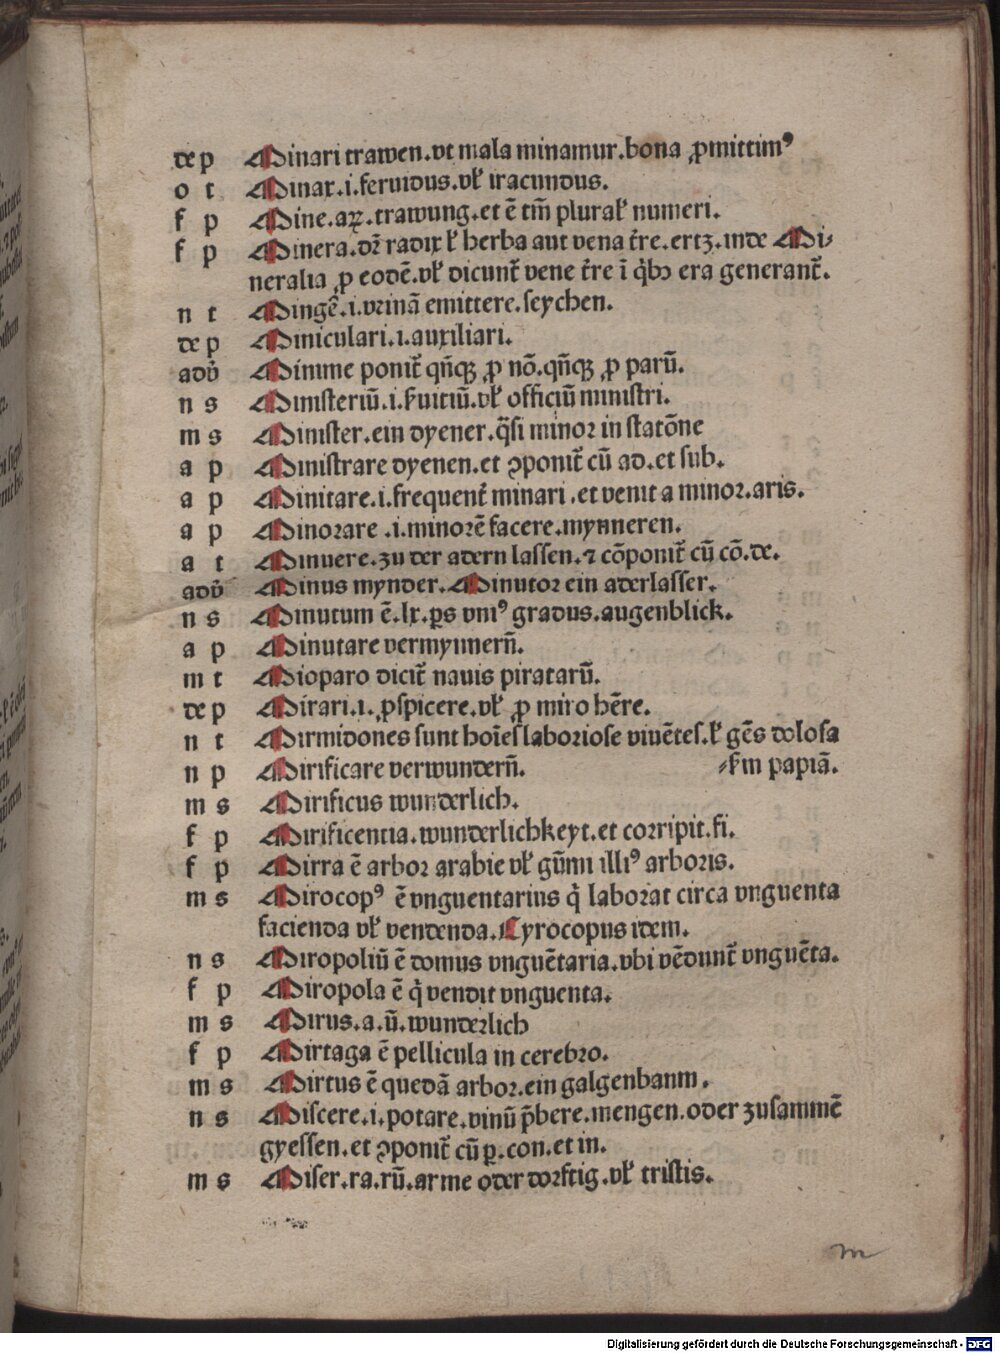 de p Minari trawen.vt mala minamur.bona ꝓmittimꝰ
o t Minax.i.feruidus.vl̕ iracundus.
f p Mine.aꝝ.trawung.et ē tm̄ plural̕ numeri.
f p Minera.dr̄ radix l̕ herba aut vena t̄re.ertz.inde Mi⸗
neralia ꝓ eodē.vl̕ dicunt᷑ vene t̄re ī q̇bꝫ era generant᷑.
n t Mingē̕.i.vrinā emittere.seychen.
de p Miniculari.i.auxiliari.
adv̄ Minime ponit᷑ qn̄qꝫ ꝓ nō.qn̄qꝫ ꝓ parū.
n s Ministeriū.i.ẜuitiū.vl̕ officiū ministri.
m s Minister.ein dyener.q̄si minor in statōne
a p Ministrare dyenen.et ꝯponit᷑ cū ad.et sub.
a p Minitare.i.frequent᷑ minari.et venit a minor.aris.
a p Minorare .i.minorē facere.mynneren.
a t Minuere.zu der adern lassen.⁊ cōponit᷑ cū cō.de.
adv̄ Minus mynder.Minutor ein aderlasser.
n s Minutum ē.lx.ꝑs vniꝰ gradus.augenblick.
a p Minutare vermynnern̄.
m t Mioparo dicit᷑ nauis piratarū.
de p Mirari.i.ꝓspicere.vl̕ ꝓ miro hēre.
n t Mirmidones sunt hoīes laboriose viuētes.l̕ gēs dolosa
n p Mirificare verwundern̄. ⸗ẜm papiā.
m s Mirificus wunderlich.
f p Mirificentia.wunderlichkeyt.et corripit.fi.
f p Mirra ē arbor arabie vl̕ gūmi illiꝰ arboris.
m s Mirocopꝰ ē vnguentarius q̇ laborat circa vnguenta
facienda vl̕ vendenda.Cyrocopus idem.
n s Miropoliū ē domus vnguētaria.vbi vēdunt᷑ vnguēta.
f p Miropola ē q̇ vendit vnguenta.
m s Mirus.a.ū.wunderlich
f p Mirtaga ē pellicula in cerebro.
m s Mirtus ē quedā arbor.ein galgenbanm.
n s Miscere.i.potare.vinū p̄bere.mengen.oder zusammē
gyessen.et ꝯponit᷑ cū ꝑ.con.et in.
m s Miser.ra.rū.arme oder dorftig.vl̕ tristis.
m
Digitalisierung gefördert durch die Deutsche Forschungsgemeinschaft - DFG